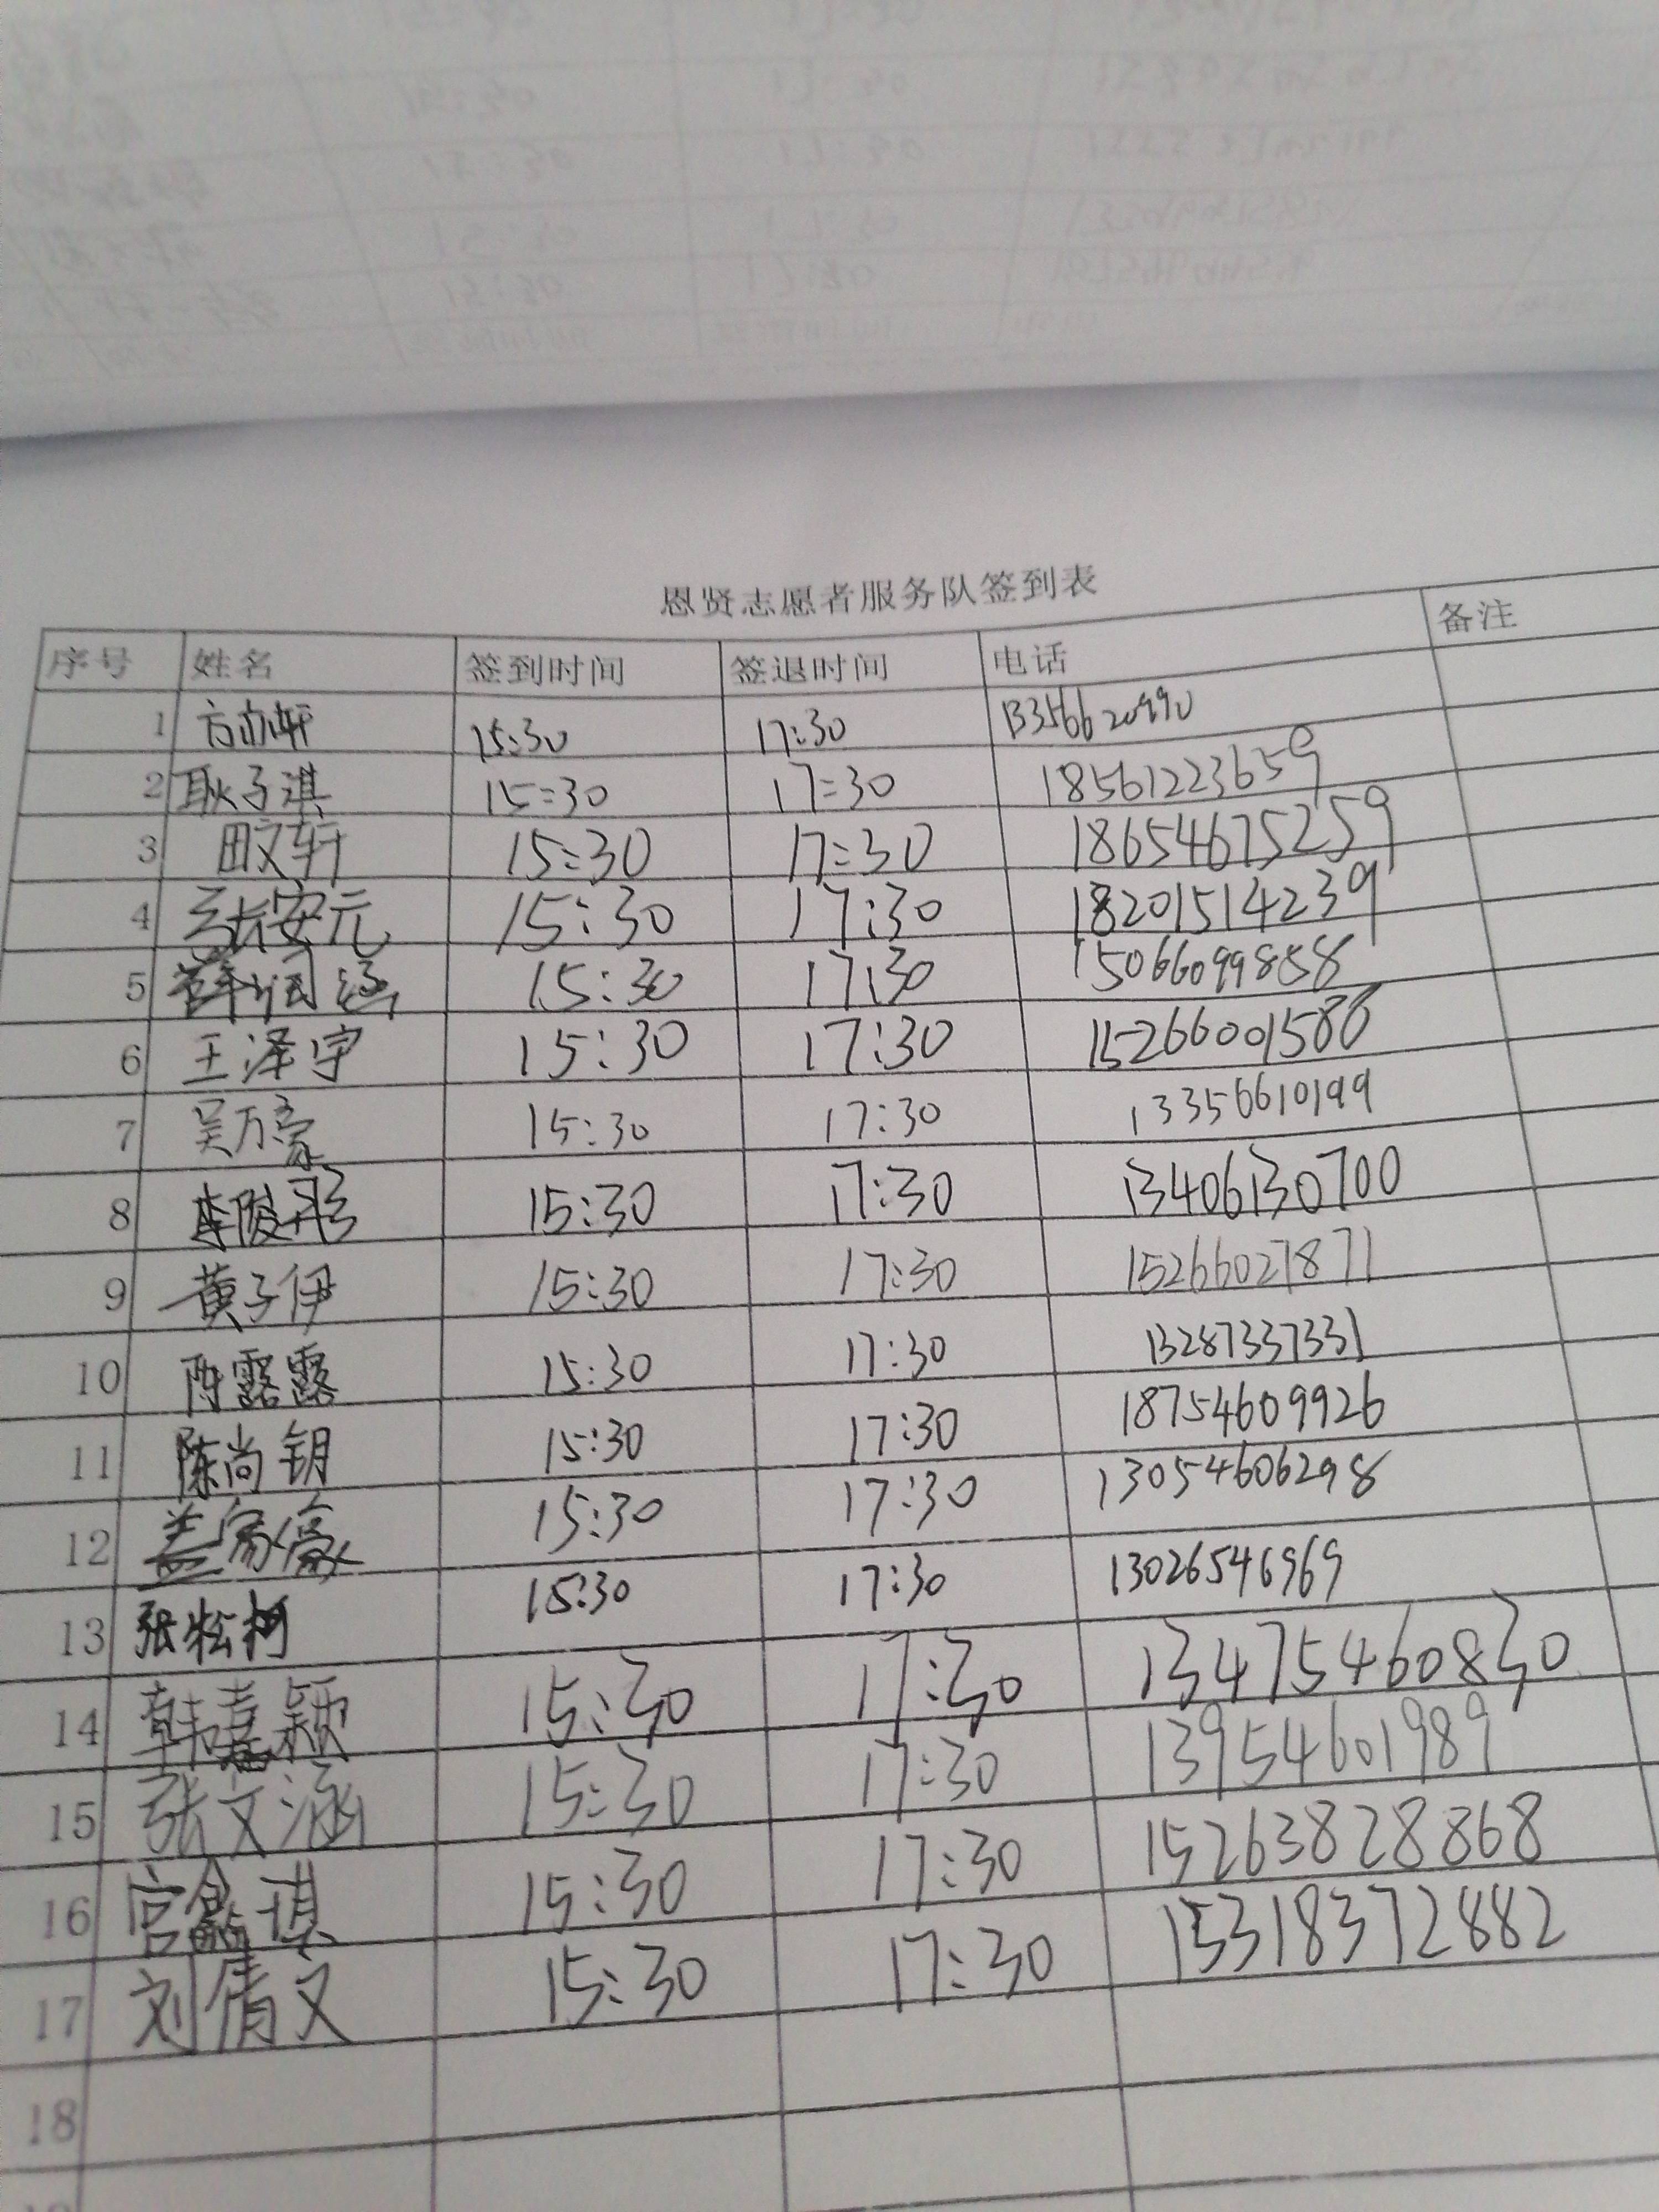 恩贤志愿者服务队签到表
序号 姓名 签到时间 签退时间 电话 备注
1 方亦轩 15:30 17:30 13356620990
2 耿子淇 15:30 17:30 18561223659
3 田文轩 15:30 17:30 18654675259
4 张安元 15:30 17:30 18201514239
5 薛润涵 15:30 17:30 15066099858
6 王泽宇 15:30 17:30 15266001588
7 吴万豪 15:30 17:30 13356610199
8 李陵彤 15:30 17:30 13406130700
9 黄子伊 15:30 17:30 15266027871
10 陈露露 15:30 17:30 13287337331
11 陈尚钥 15:30 17:30 18754609926
12 盖家豪 15:30 17:30 13054606298
13 张松柯 15:30 17:30 13026546969
14 韩嘉颖 15:30 17:30 13475460830
15 张文涵 15:30 17:30 13954601989
16 宫鑫琪 15:30 17:30 15263828868
17 刘倩文 15:30 17:30 15318372882
18